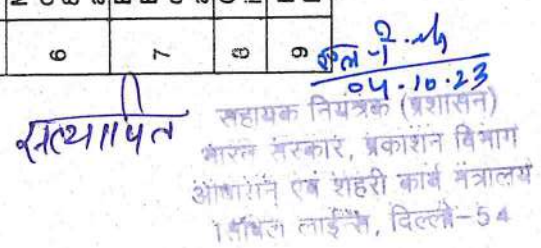 6 7 8 9
04.10.23
सत्यापित
सहायक नियंत्रक (प्रशासन)
भारत सरकार, प्रकाशन विभाग
आवासन एवं शहरी कार्य मंत्रालय
सिविल लाईन्स, दिल्ली-54